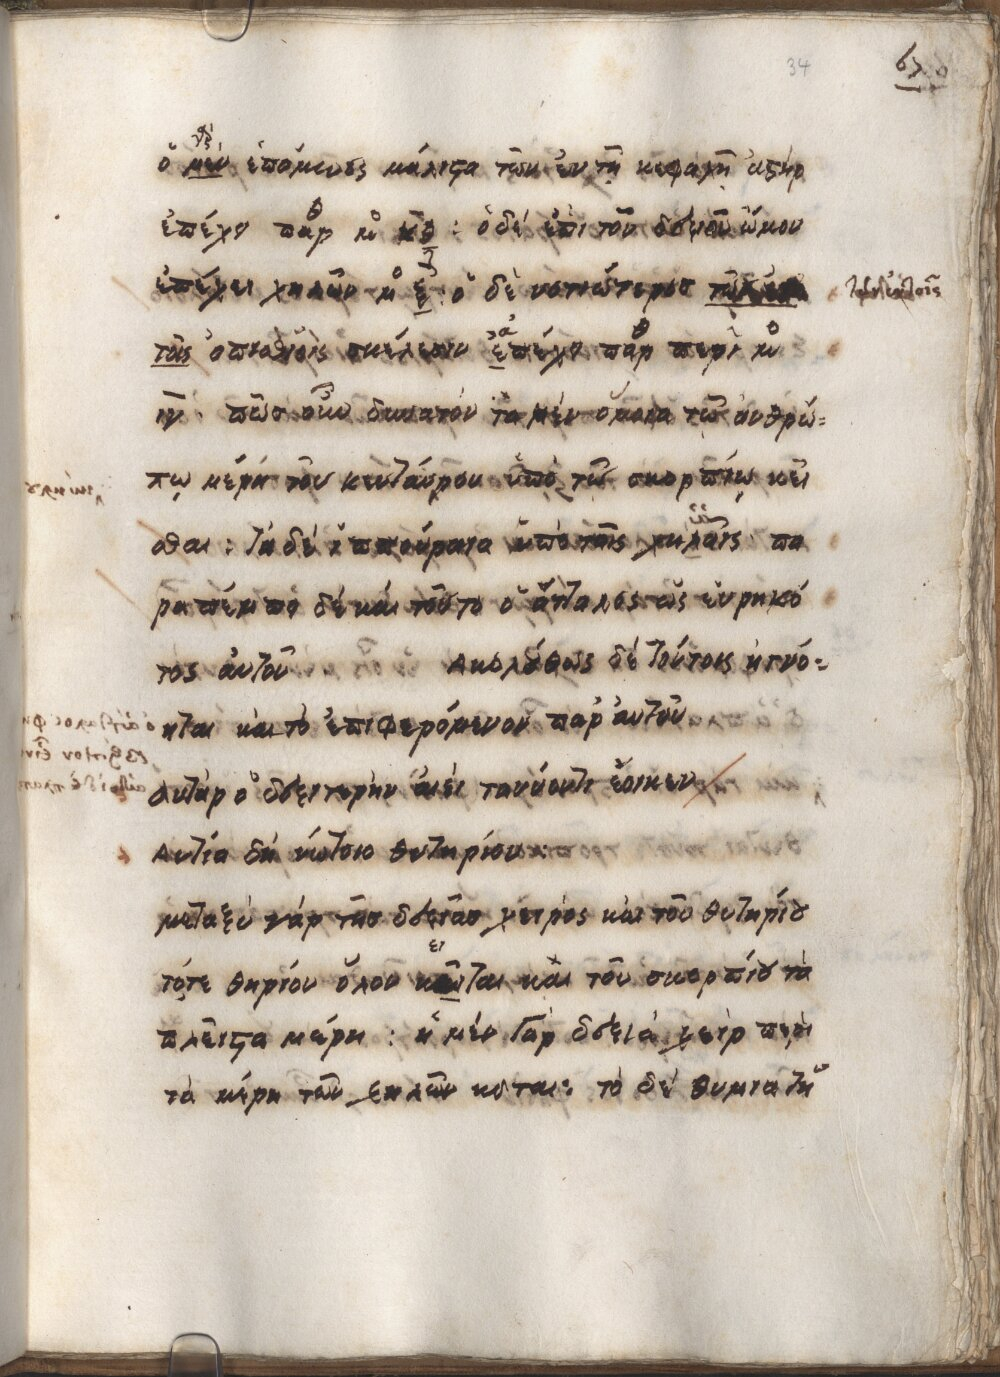 34
ὁ μὲν ἑπόμενος μάλιστα τῶν ἐν τῇ κεφαλῇ ἀστὴρ
ἐπέχει παρθ μο κθ : ὁ δὲ ἐπὶ τοῦ δεξιοῦ ὤμου
ἐπέχει χηλῶν μο ζ : ὁ δὲ νοτιώτερος
τοῖς ὀπισθίοις σκέλεσιν ἐπέχει παρθ περὶ μο
ιγ . πῶς οὖν δυνατόν τὰ μὲν ὅμοια τῷ ἀνθρώ=
πῳ μέρη τοῦ κενταύρου ὑπὸ τῷ σκορπίῳ κεῖ
σθαι : τὰ δὲ ἱππούραια ὑπὸ ταῖς χηλαῖς πα
ραπέμπει δὲ καὶ τοῦτο ὁ ἄτταλος ὡς εὐρηκό
τος αὐτοῦ Ἀκολούθως δὲ τούτοις ἠγνό=
ηται καὶ τὸ ἐπιφερόμενον παρ' αὐτοῦ
Αὐτὰρ ὁ δεξιτερὴν αἰεὶ τανύοντι ἔοικεν
Ἀντία δὴ νώτοιο θυτηρίου
μεταξὺ γὰρ τῆς δεξιᾶς χειρὸς καὶ τοῦ θυτηρίου
τό τε θηρίον ὅλον κεῖται καὶ τοῦ σκορπίου τὰ
πλεῖστα μέρη : ἡ μὲν γὰρ δεξιὰ χεὶρ περὶ
τὰ μέρη τῶν χηλῶν κεῖται : τὸ δὲ θυμιατή